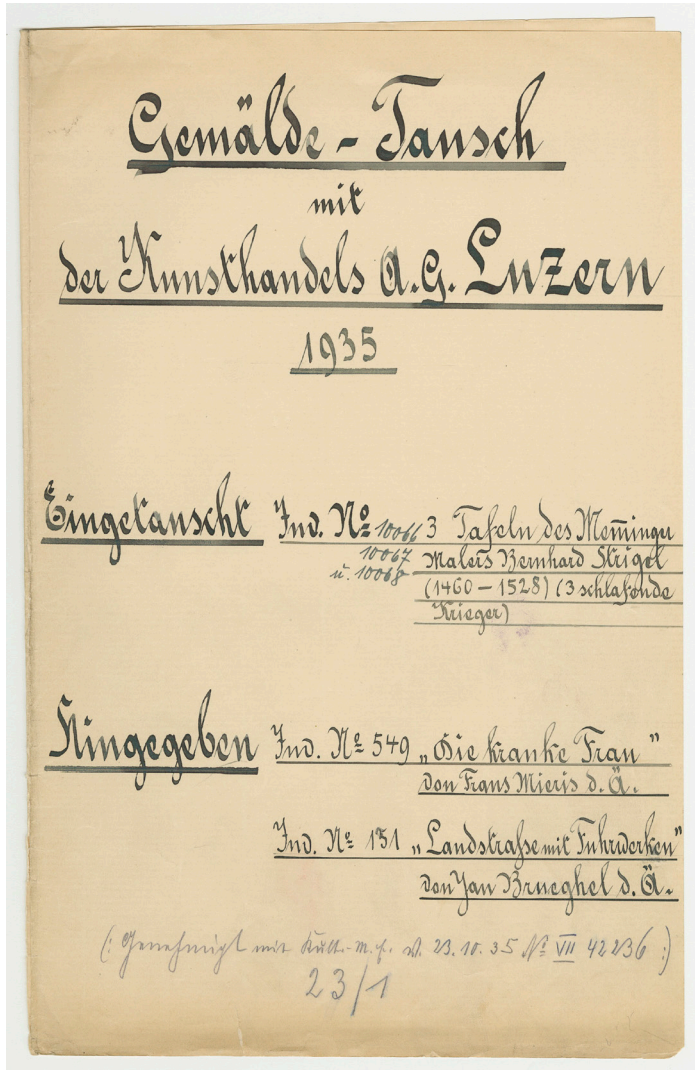 Gemälde - Tausch
mit
der Kunsthandels A.G. Luzern
1935
Eingetauscht Inv. No 10066 3 Tafeln des Mem̅inger
10067 Malers Bernhard Strigel
u. 10068 (1460 - 1528) (3 schlafende
Krieger)
Hingegeben Inv. No 549 „Die kranke Frau"
von Frans Mieris d. Ä.
Inv. No 131 „Landstrasse mit Fuhrwerken"
von Jan Brueghel d. Ä.
(: Genehmigt mit Kult.-M.E. v. 23.10.35 No VII 42236 :)
23/1